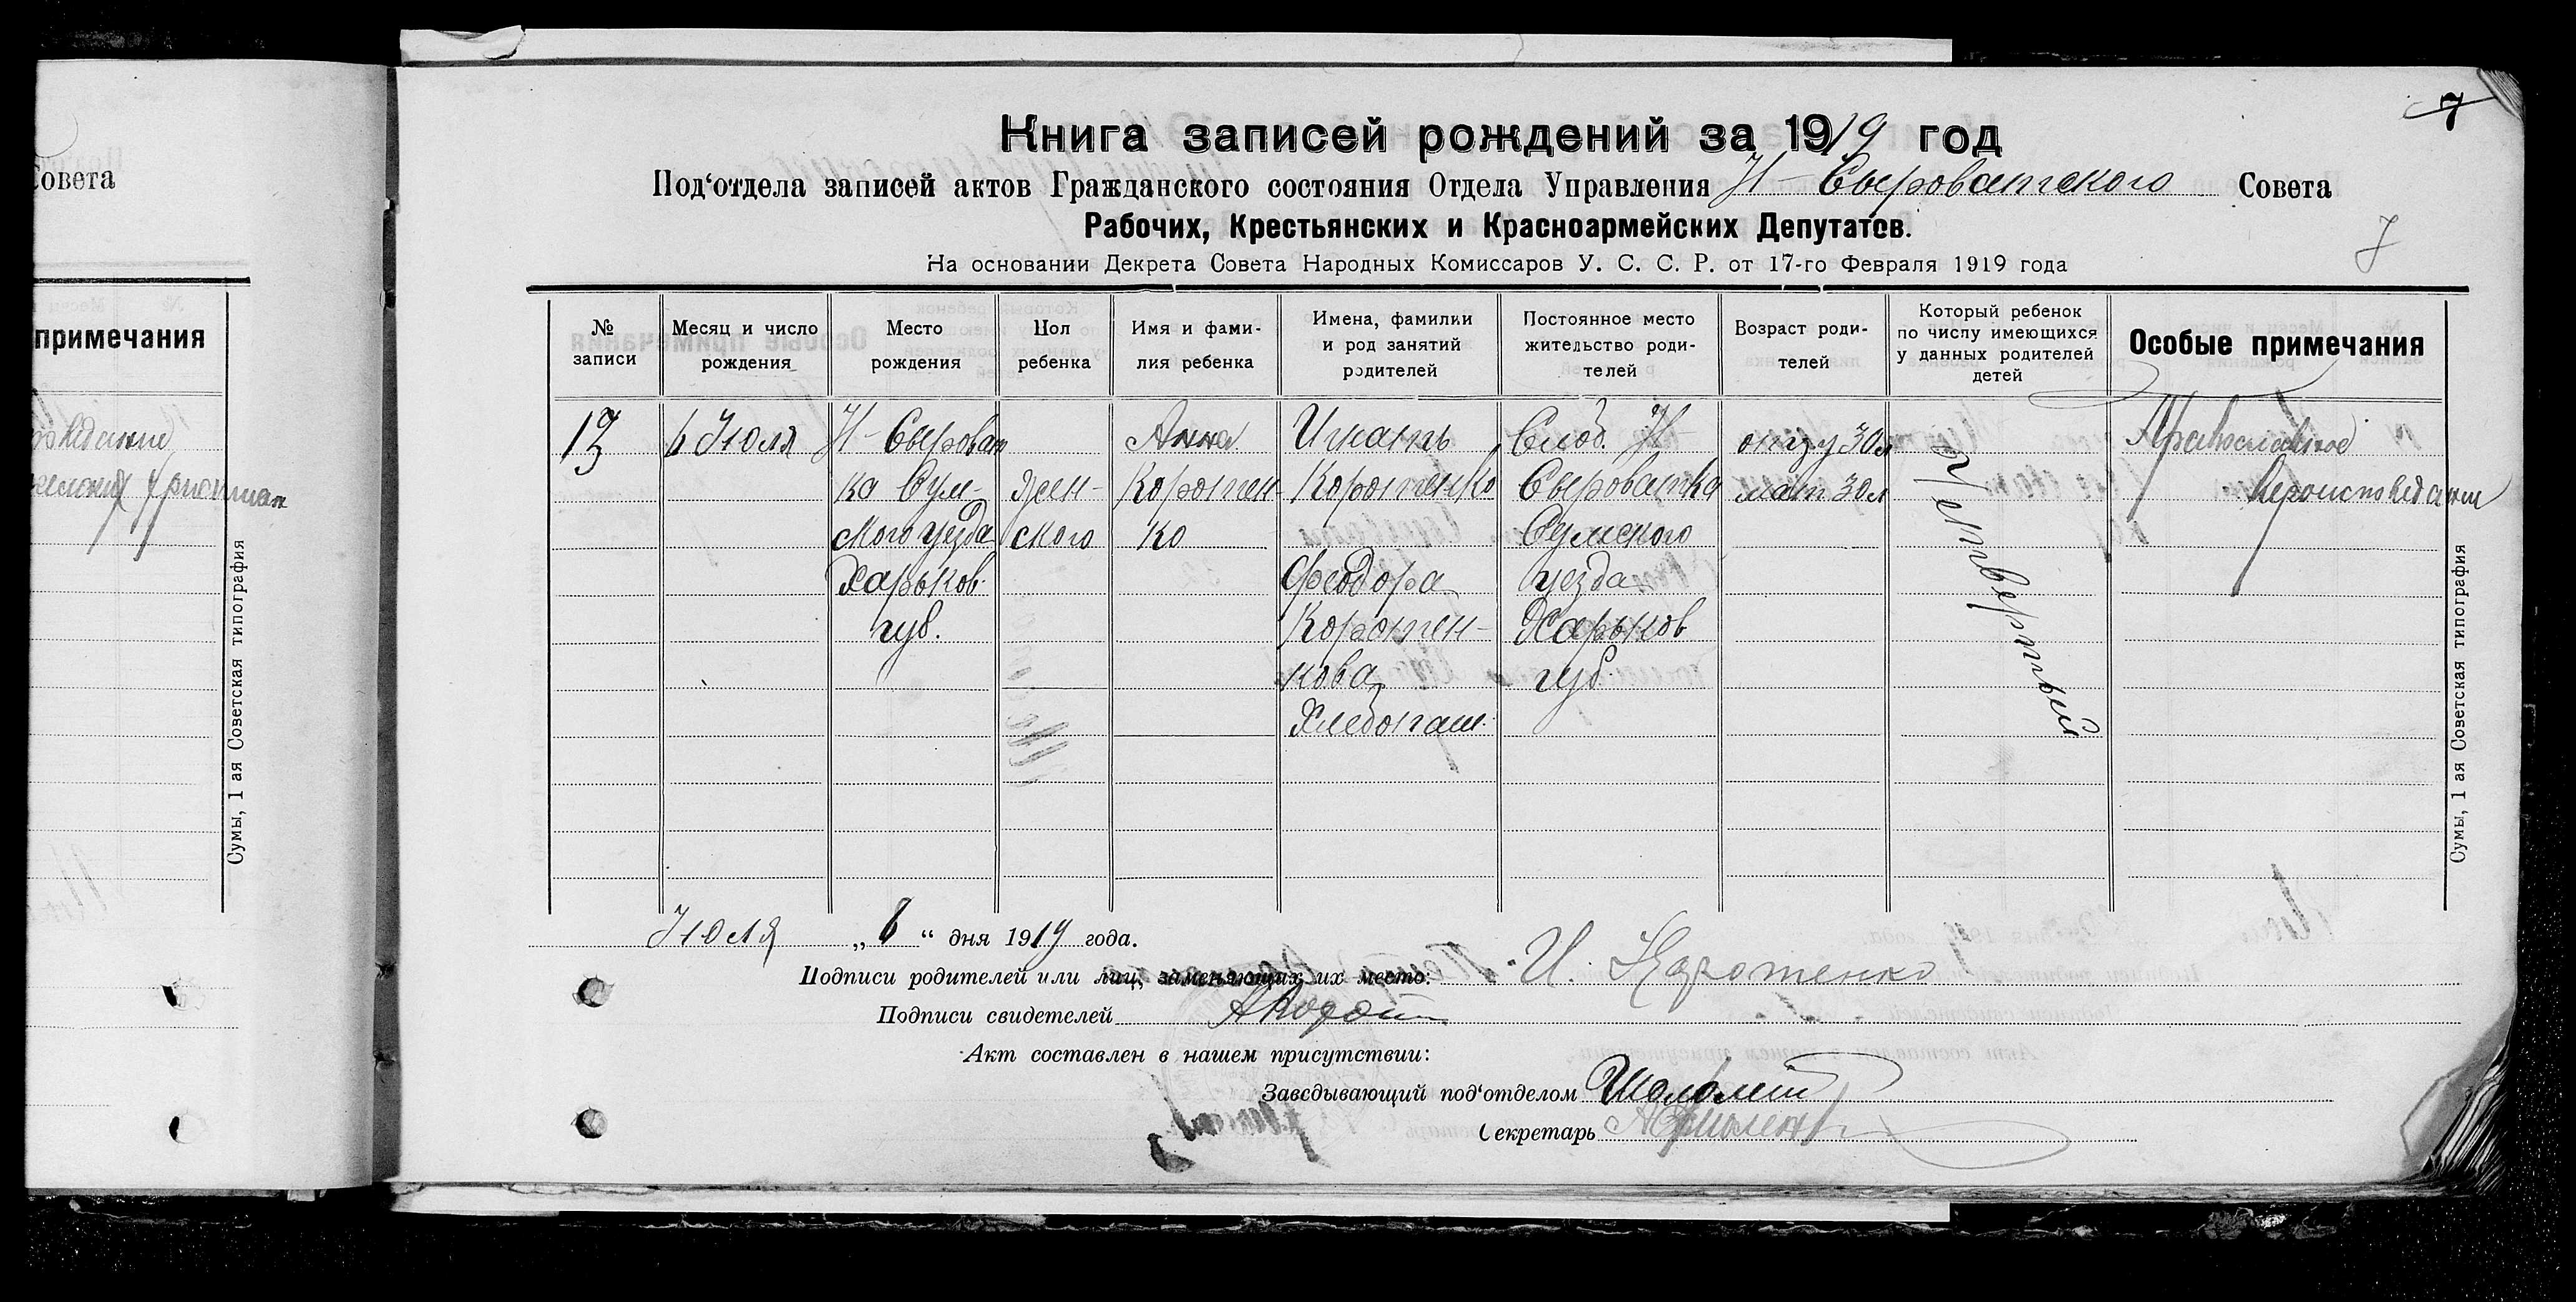 Совета
примечания
Сумы, 1 ая Советская типография
7
Книга записей рождений за 1919 год
Под'отдела записей актов Гражданского состояния Отдела Управления Н-Сыроватского Совета
Рабочих, Крестьянских и Красноармейских Депутатов.
7
На основании Декрета Совета Народных Комиссаров У. С. С. Р. от 17-го Февраля 1919 года
№ записи
Месяц и число рождения
Место рождения
Пол ребенка
Имя и фами-
лия ребенка
Имена, фамилии
и род занятий
родителей
Постоянное место
жительство роди-
телей
Возраст роди-
телей
Который ребенок
по числу имеющихся
у данных родителей
детей
Особые примечания
13
6 Июля
Н-Сыроват
ка Сум-
ского уезда
Харьков.
губ.
жен-
ского
Анна
Коротен-
ко
Игнать
Коротенко
Феодора
Коротен-
кова
Хлебопаш.
Слоб. Н-
Сыроватка
Сумского
уезда
Харьков
губ.
отцу 30л
мат 30л
Четвертый
Православное
вероисповедание
Сумы, 1 ая Советская типография
Июля „6“ дня 1919 года.
Подписи родителей или лиц, заменяющих их место: И. Коротенко
Подписи свидетелей
Акт составлен в нашем присутствии:
Заведывающий под'отделом
Секретарь